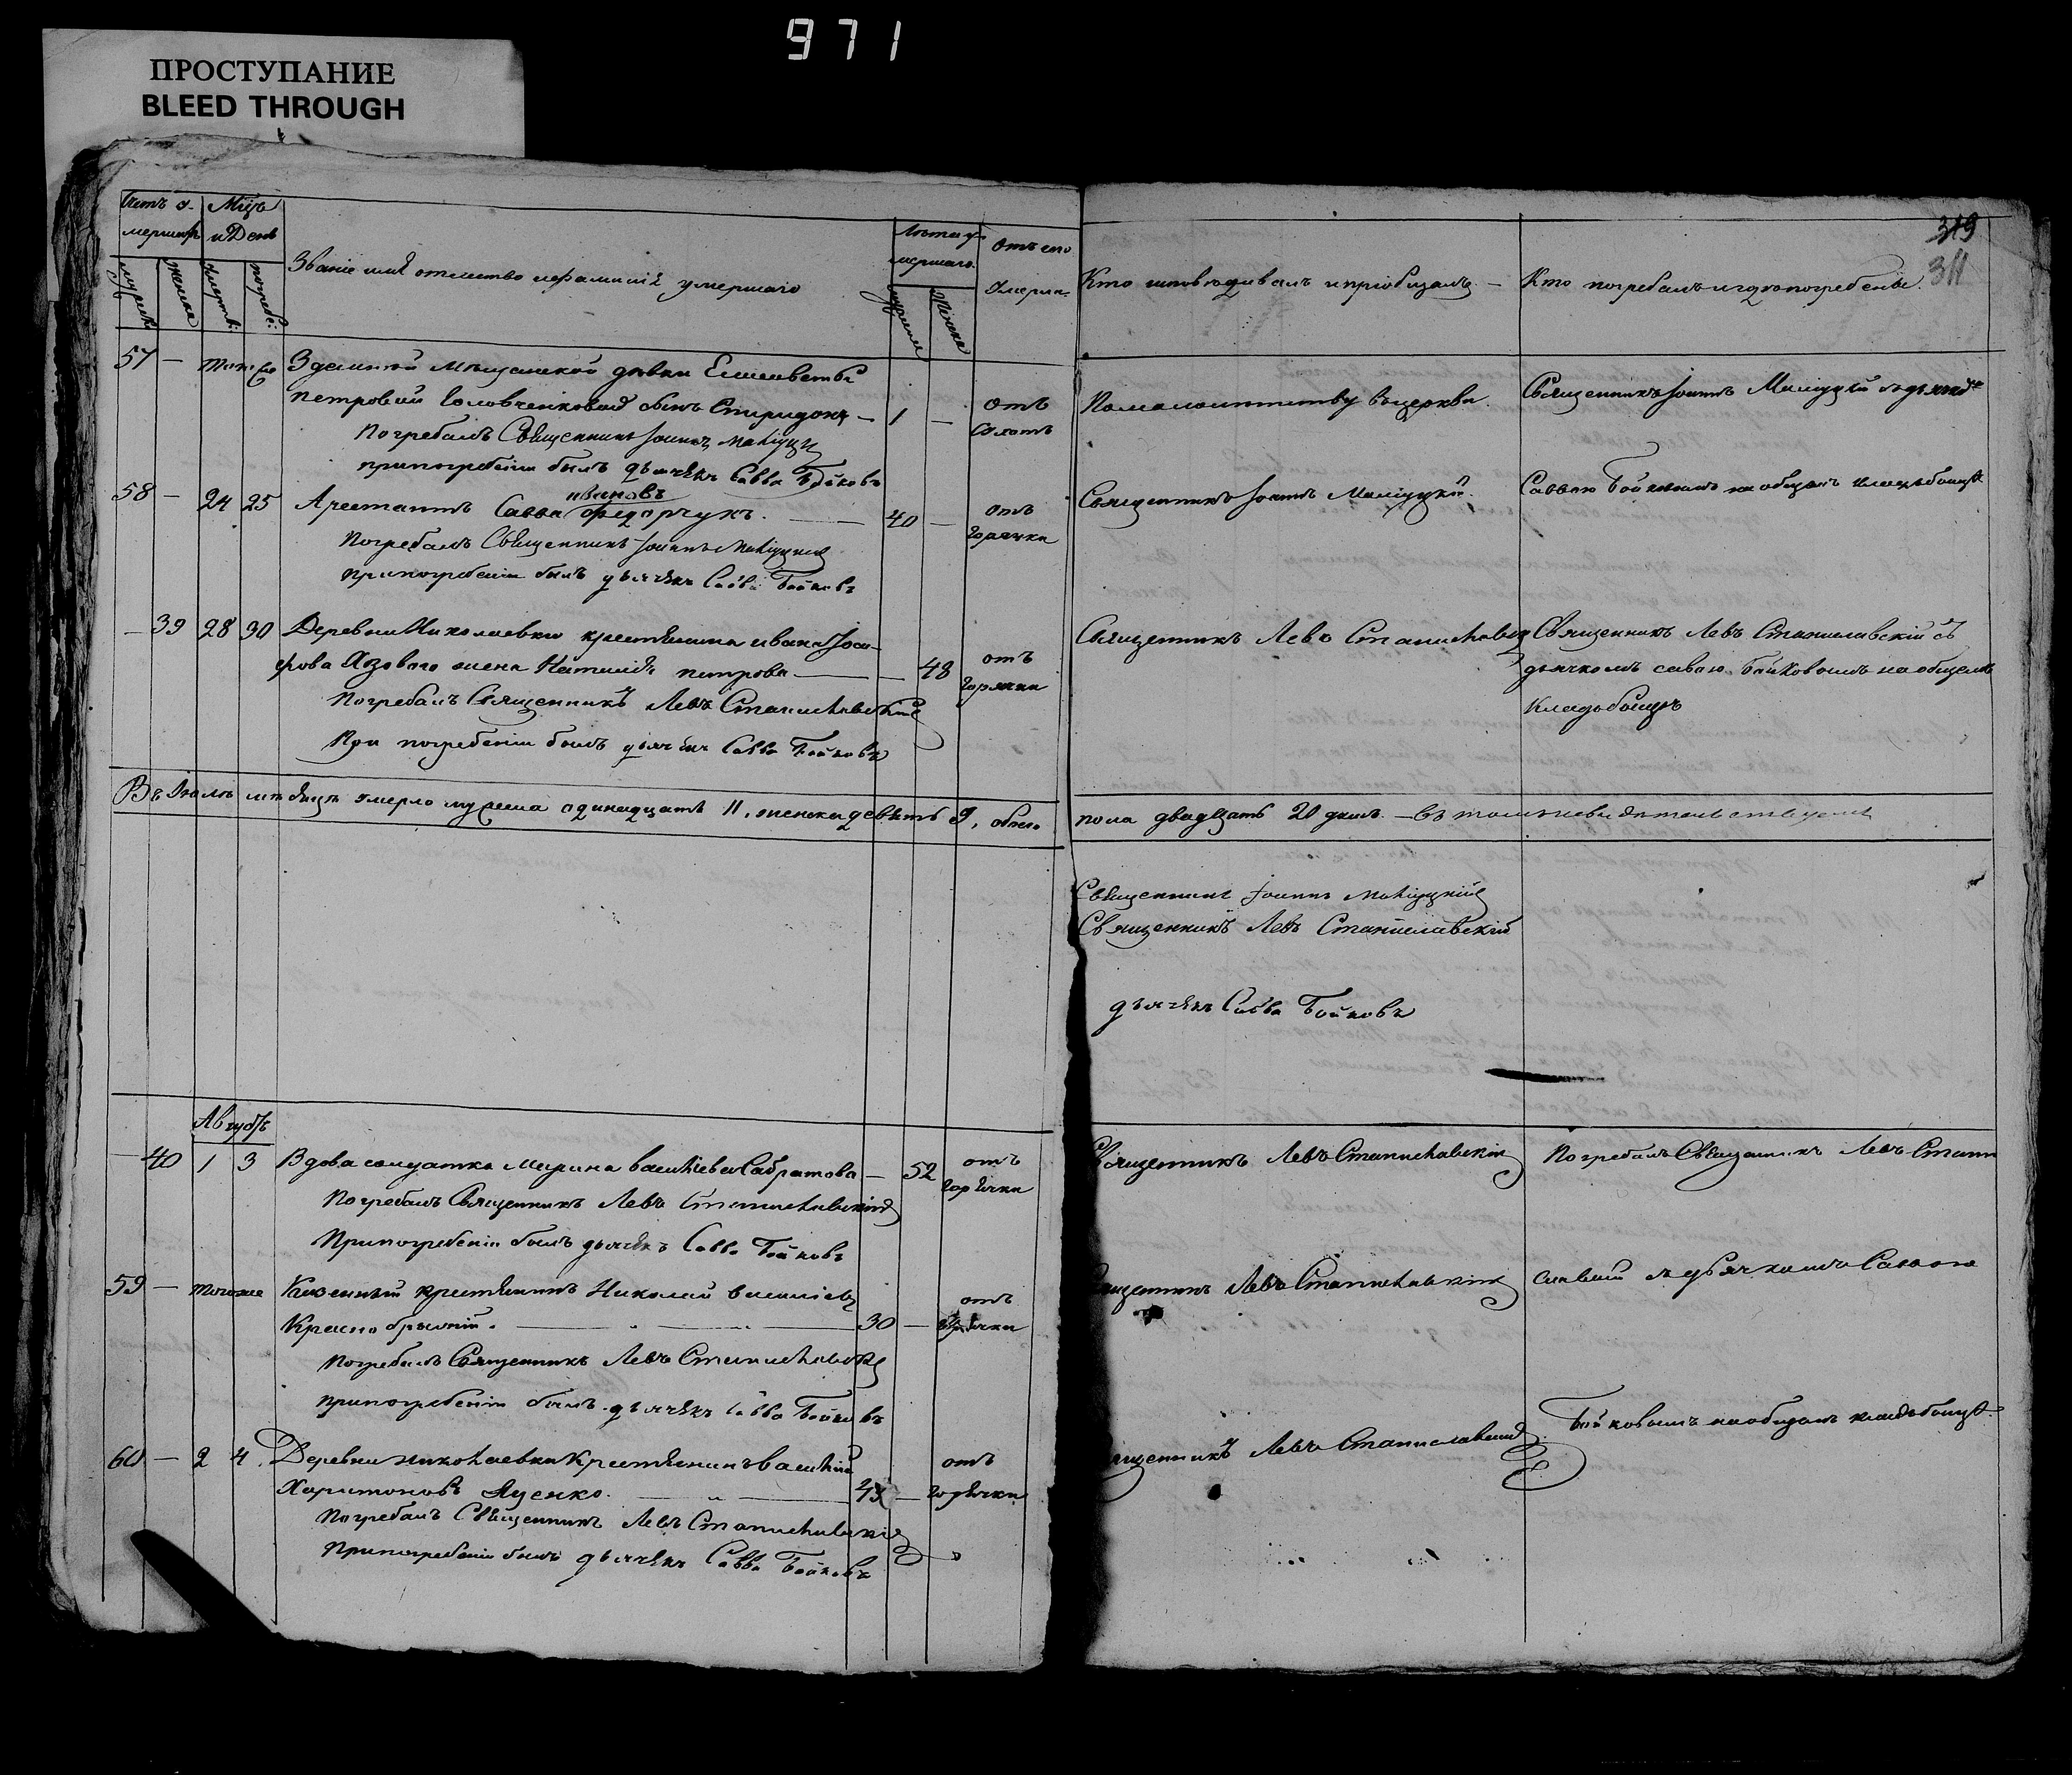 971
ПРОСТУПАНИЕ
BLEED THROUGH
319
311
Счетъ у-
мершихъ
Мцъ
и День
мужеск:
женска
смерть:
погреб:
Званіе имя отчество и фамилія умершаго
Лѣта у-
мершаго
мужеска
женска
Отъ чего
умерли.
Кто исповѣдывалъ и пріобщалъ. —
Кто погребалъ и гдѣ погребены.
57 —
Здешней мѣщанской дѣвки Елисаветы
Петровой Головченковой сынъ Спиридонъ — 1 —
отъ
Погребалъ Священникъ Іоаннъ
при погребеніи былъ дьячекъ Савва Бойковъ
По малолетству въ церкви.
Священникъ Іоаннъ съ дьячко
58 — 24 25
Ивановъ
Арестантъ Савва Федорчукъ. — 40 —
отъ
горячки
Погребалъ Священникъ Іоаннъ
при погребеніи былъ дьячекъ Савва Бойковъ
Священникъ Іоаннъ
Саввою Бойковымъ на общемъ кладьбищѣ
— 39 28 30
Деревни Николаевки крестьянина Ивана Іоси-
фова Язового жена Наталія Петрова — — 48
отъ
горячки
Погребалъ Священникъ Левъ Станиславскій
При погребеніи былъ дьячекъ Савва Бойковъ
Священникъ Левъ Станиславскій
Священникъ Левъ Станиславскій съ
дьячкомъ Савою Бойковымъ на общемъ
Кладьбищѣ
Въ Іюлѣ месяцѣ умерло мужеска одинадцать 11, женска девять 9, обоего
пола двадцать 20 душъ. — въ томъ и свидѣтельствуемъ
Священникъ Іоаннъ
Священникъ Левъ Станиславскій
дьячекъ Савва Бойковъ
Августъ
— 40 1 3
Вдова солдатка Марина Васильева — 52
отъ
горячки
Погребалъ Священникъ Левъ Станиславскій
При погребеніи былъ дьячекъ Савва Бойковъ
Священникъ Левъ Станиславскій
Погребалъ Священникъ Левъ Стани
59 — того же
Казенный крестьянинъ Николай Васильевъ
30 —
отъ
горячки
Погребалъ Священникъ Левъ Станиславскій
при погребеніи былъ дьячекъ Савва Бойковъ
Священникъ Левъ Станиславскій
славскій съ дьячкомъ Саввою
60 — 2 4.
Деревни Николаевки Крестьянинъ Василій
Харитоновъ Яценко. — 43 —
отъ
горячки
Погребалъ Священникъ Левъ Станиславскій
При погребеніи былъ дьячекъ Савва Бойковъ
Священникъ Левъ Станиславскій
Бойковымъ на общемъ кладьбищѣ.